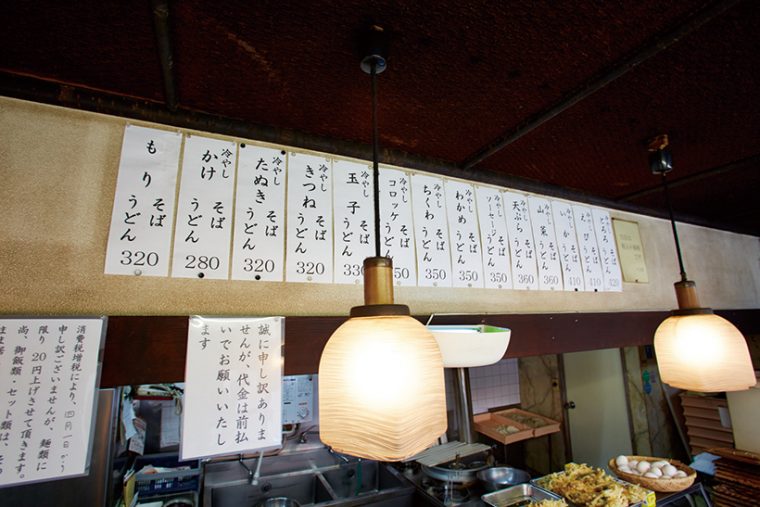 もり そば うどん 320
冷やし かけ そば うどん 280
冷やし たぬき そば うどん 320
冷やし きつね そば うどん 320
冷やし 玉子 そば うどん 33
冷やし コロッケ そば うどん 50
冷やし ちくわ そば うどん 350
冷やし わかめ そば うどん 350
冷やし ソーセージ そば うどん 350
冷やし 天ぷら そば うどん 360
冷やし 山菜 そば うどん 360
冷やし いか そば うどん 410
冷やし えび そば うどん 410
とろろ そば うどん 420
誠に申し訳ありま
せんが、代金は前払
いでお願いいたし
ます
消費税増税により、四月一日から
申し訳ございませんが、麺類に
限り20円上げさせて頂きます。
尚、御飯類・セット類は、